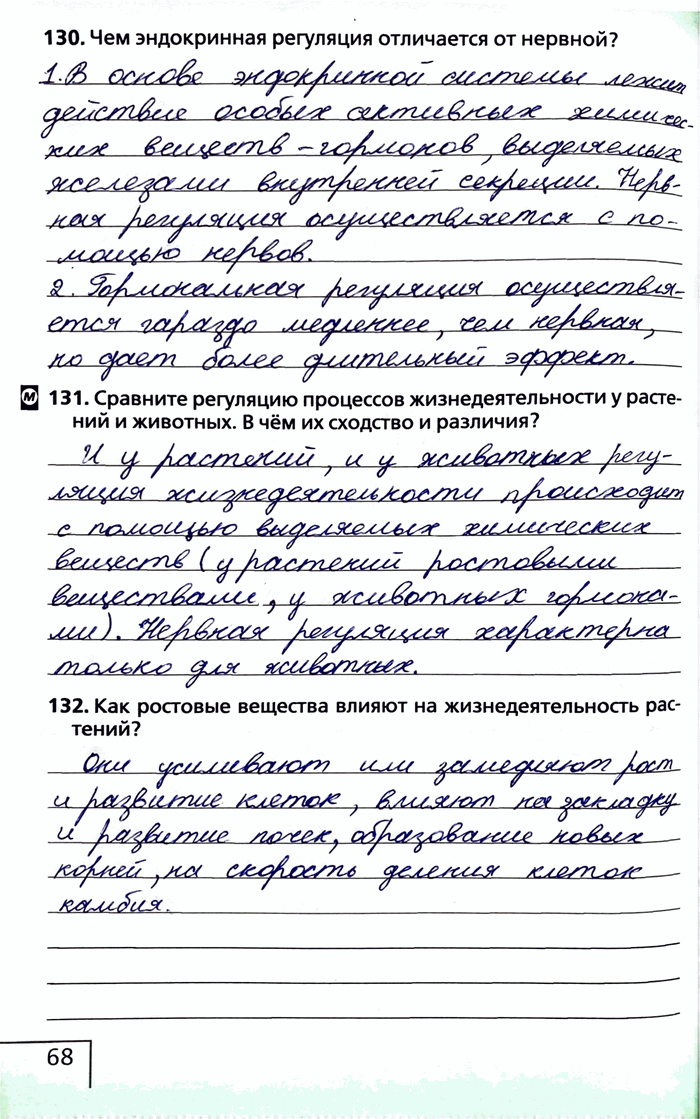 130. Чем эндокринная регуляция отличается от нервной?
1. В основе эндокринной системы лежит
действие особых активных химичес-
ких веществ – гормонов, выделяемых
железами внутренней секреции. Нерв-
ная регуляция осуществляется с по-
мощью нервов.
2. Гормональная регуляция осуществля-
ется гараздо медленнее, чем нервная,
но дает более длительный эффект.
М 131. Сравните регуляцию процессов жизнедеятельности у расте-
ний и животных. В чём их сходство и различия?
И у растений, и у животных регу-
ляция жизнедеятельности происходит
с помощью выделяемых химических
веществ (у растений ростовыми
веществами, у животных гормона-
ми). Нервная регуляция характерна
только для животных.
132. Как ростовые вещества влияют на жизнедеятельность рас-
тений?
Они усиливают или замедляют рост
и развитие клеток, влияют на закладку
и развитие почек, образование новых
корней, на скорость деления клеток
камбия.
68